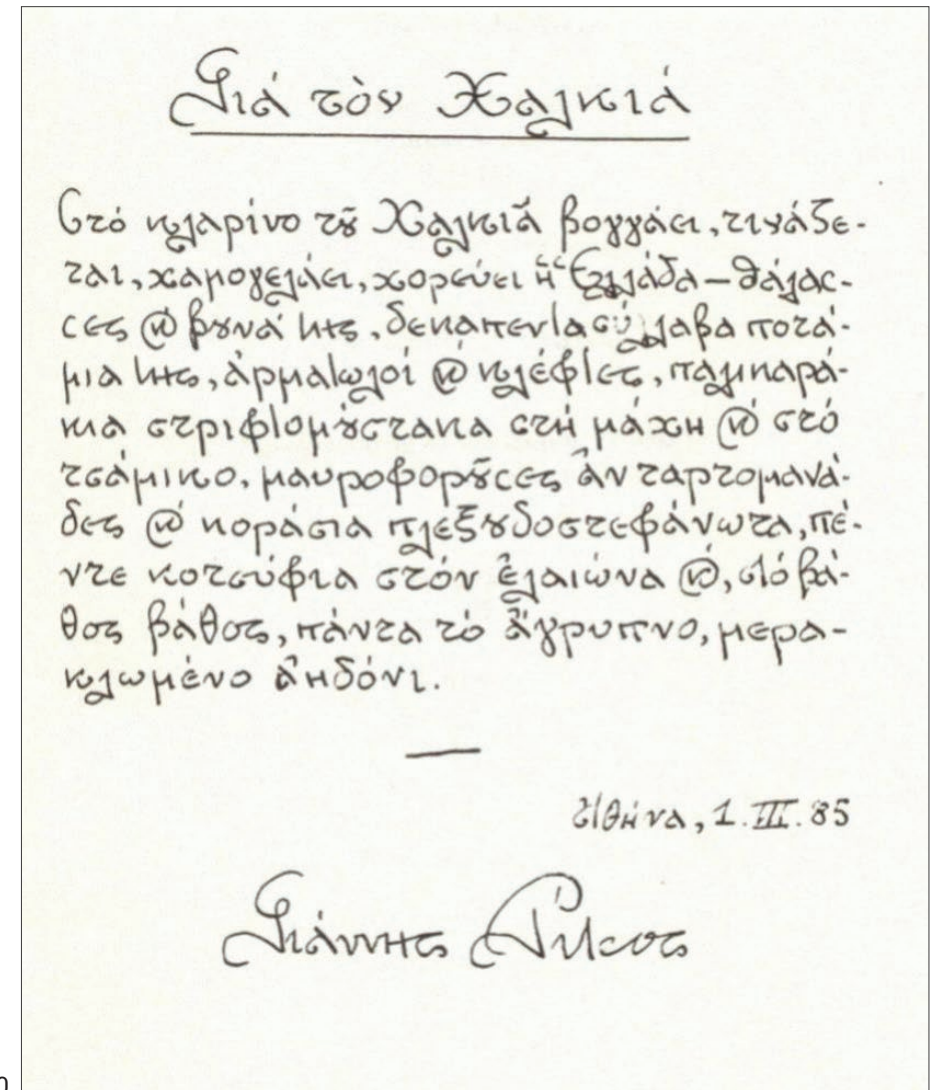 Γιά τὸν Χαλκιά
Στό κλαρίνο τοῦ Χαλκιᾶ βογγάει, τινάζε-
ται, χαμογελάει, χορεύει ἡ Ἑλλάδα – θάλασ-
σες καί βουνά της, δεκαπεντασύλλαβα ποτά-
μια της, ἁρματωλοί καί κλέφτες, παλικαρά-
κια στριφτομούστακα στή μάχη καί στό
τσάμικο, μαυροφοροῦσες ἀνταρτομανά-
δες καί κοράσια πλεξουδοστεφάνωτα, πέ-
ντε κοτσύφια στόν ἐλαιώνα καί, στό βά-
θος βάθος, πάντα τό ἄγρυπνο, μερα-
κλωμένο ἀηδόνι.
Ἀθήνα, 1.III.85
Γιάννης Ρίτσος
0